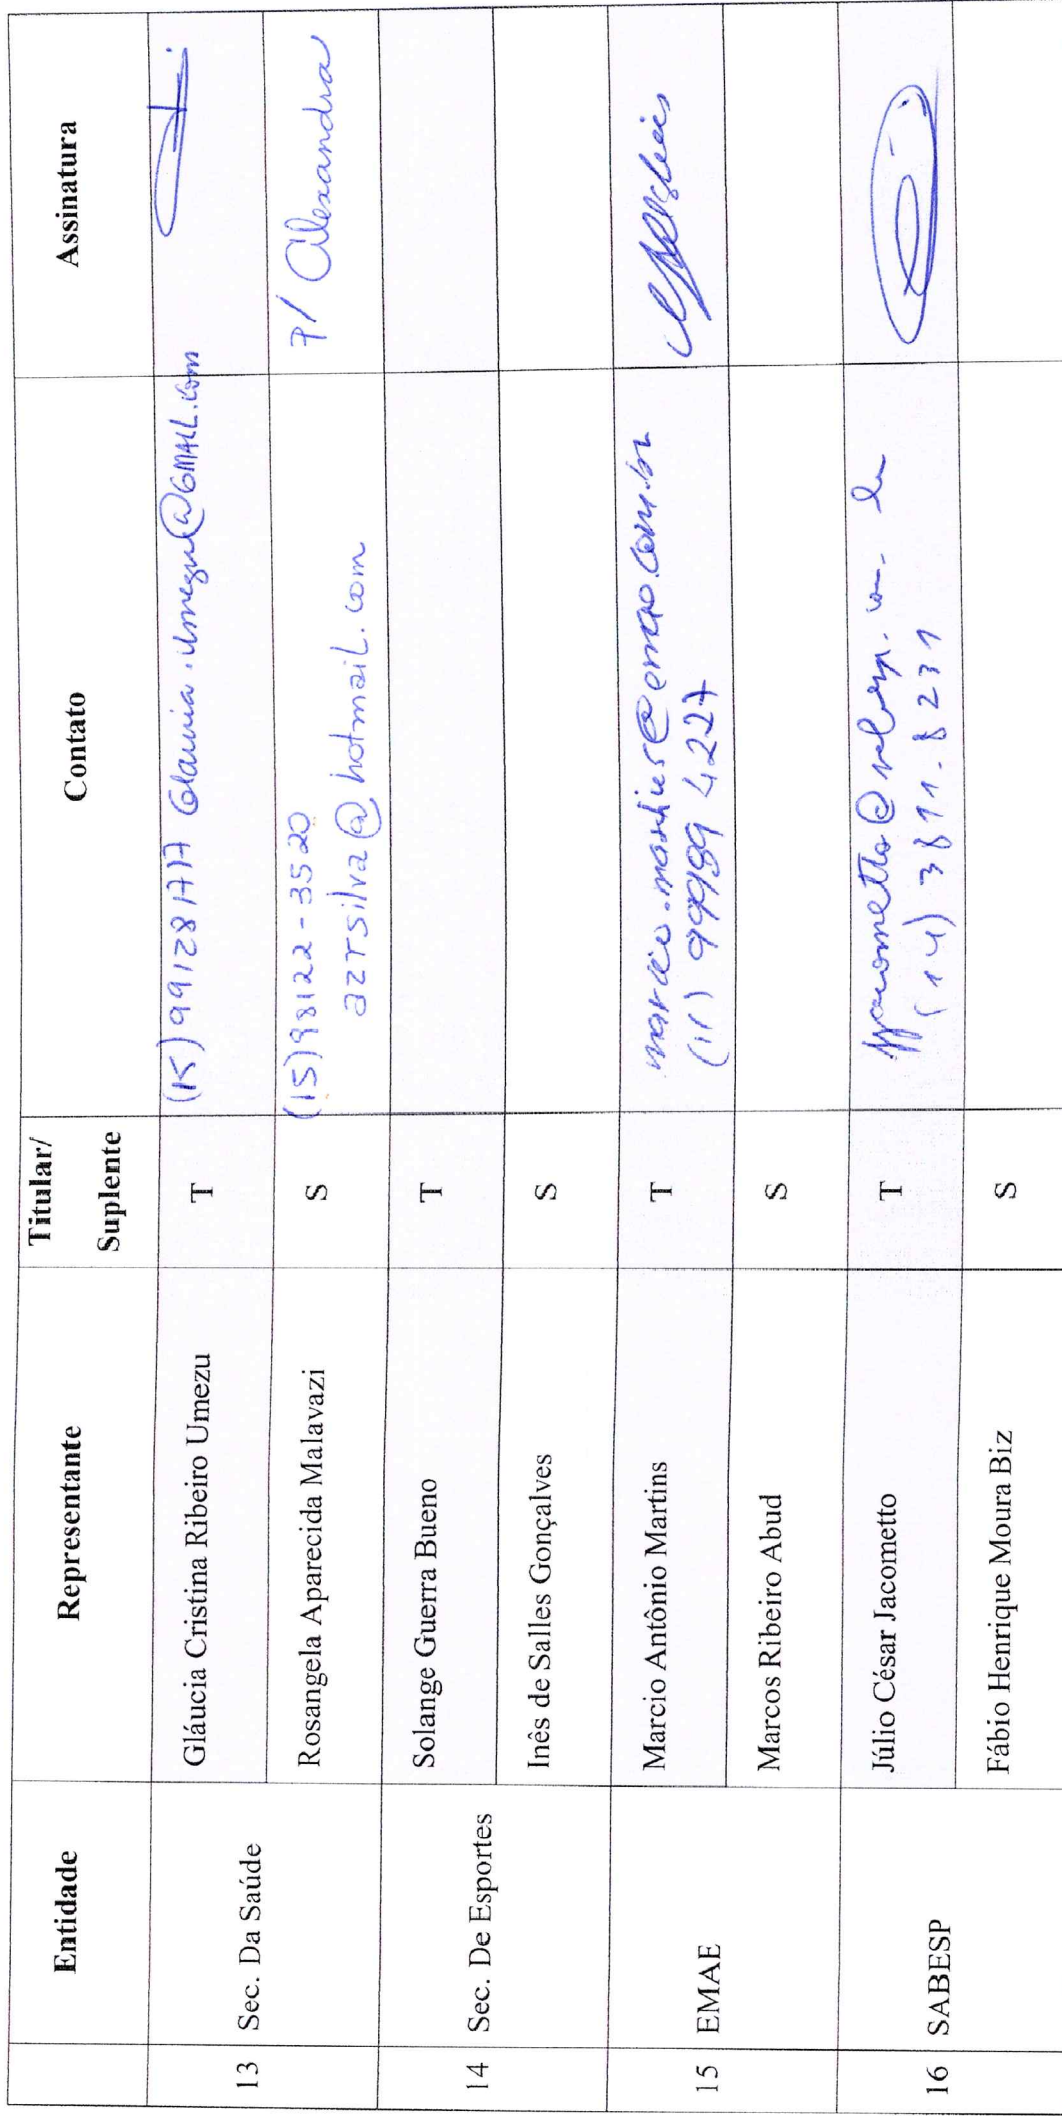 Entidade Representante Titular/ Suplente Contato Assinatura
13 Sec. Da Saúde
Gláucia Cristina Ribeiro Umezu T (15) 991281717 Glaucia.Umezu@GMAIL.com
Rosangela Aparecida Malavazi S (15) 98122-3520 P/ Alexandra
azrsilva@hotmail.com
14 Sec. De Esportes
Solange Guerra Bueno T
Inês de Salles Gonçalves S
15 EMAE
Marcio Antônio Martins T marcio.martins@emae.com.br
(11) 99989 4227
Marcos Ribeiro Abud S
16 SABESP
Júlio César Jacometto T jjacometto@sabesp.com.br
(14) 3811-8231
Fábio Henrique Moura Biz S